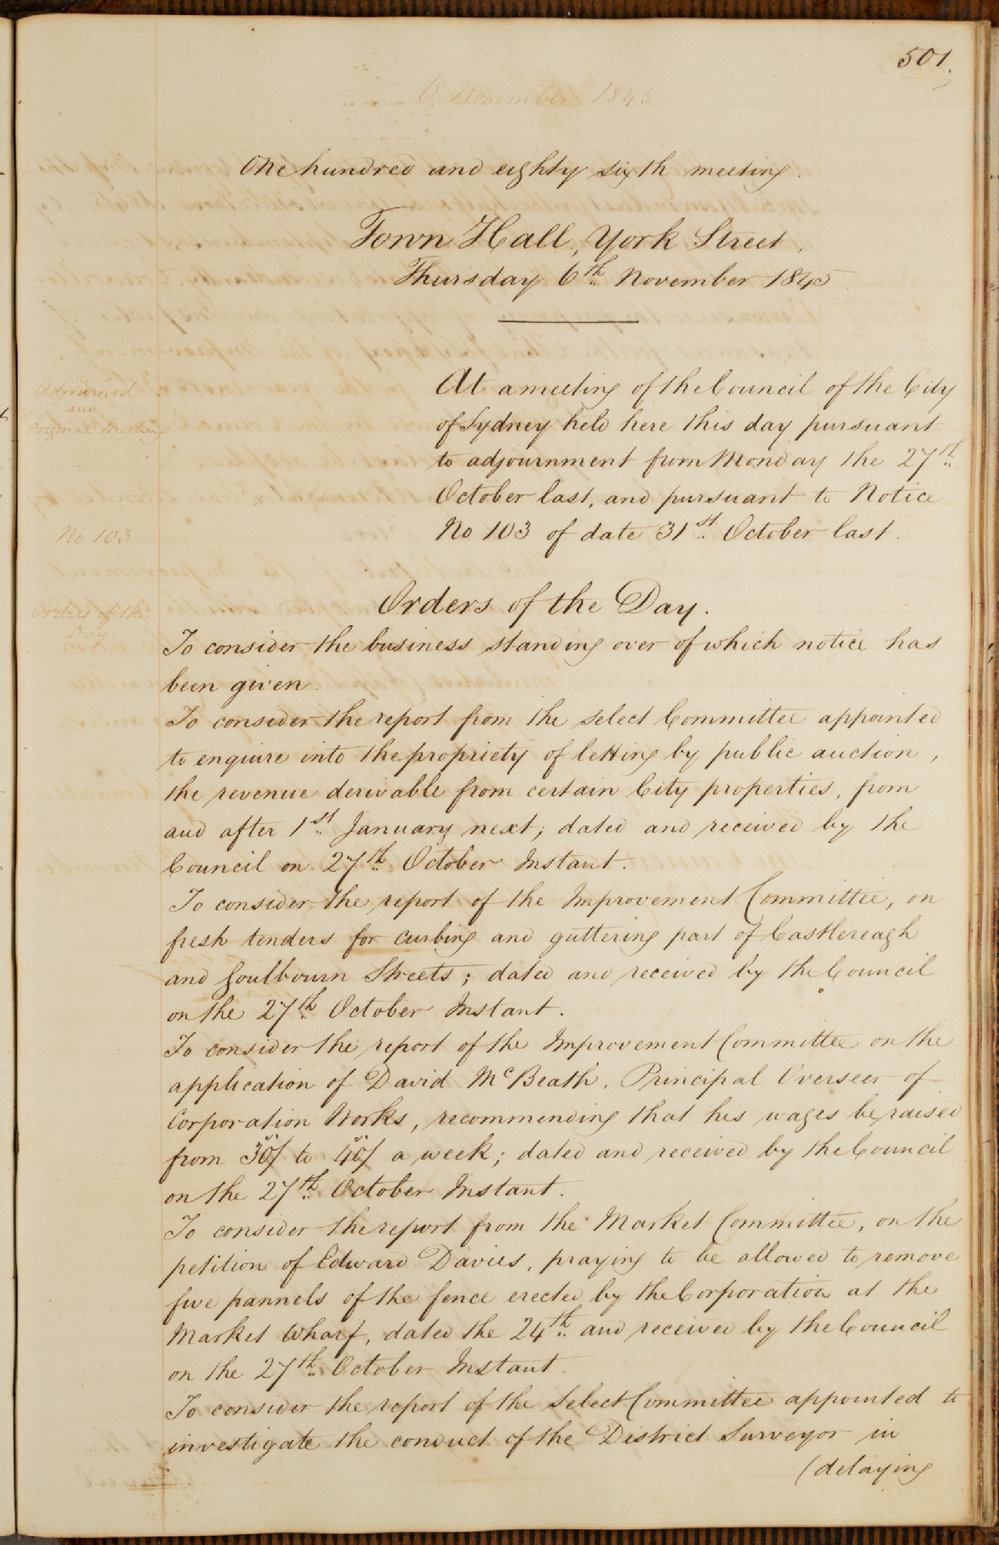 501.
6 November 1845
One hundred and eighty sixth meeting.
Town Hall, York Street.
Thursday 6th November 1845
Adjourned
and
Original Meeting
At a meeting of the Council of the City
of Sydney held here this day pursuant
to adjournment from Monday the 27th
October last, and pursuant to Notice
No 103
No 103 of date 31st October last.
Orders of the
Day
Orders of the Day.
To consider the business standing over of which notice has
been given.
To consider the report from the Select Committee appointed
to enquire into the propriety of letting by public auction,
the revenue derivable from certain City properties, from
and after 1st January next; dated and received by the
Council on 27th October Instant.
To consider the report of the Improvement Committee, on
fresh tenders for curbing and guttering part of Castlereagh
and Goulbourn Streets; dated and received by the Council
on the 27th October Instant.
To consider the report of the Improvement Committee on the
application of David McBeath, Principal Overseer of
Corporation Works, recommending that his wages be raised
from 30/ to 40/ a week; dated and received by the Council
on the 27th October Instant.
To consider the report from the Market Committee, on the
petition of Edward Davies, praying to be allowed to remove
five pannels of the fence erected by the Corporation at the
Market Wharf, dated the 24th and received by the Council
on the 27th October Instant.
To consider the report of the Select Committee appointed to
investigate the conduct of the District Surveyor in
(delaying